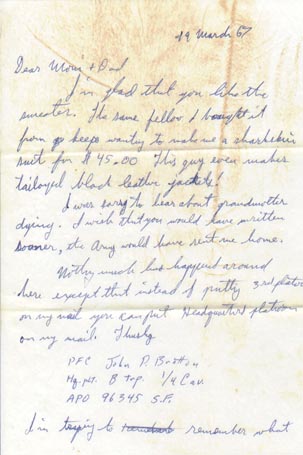 19 March 67
Dear Mom + Dad
I'm glad that you like the
sweater. The same fellow I bought it
from keeps wanting to make me a sharkskin
suit for $45.00 This guy even makes
tailored black leather jackets!
I was sorry to hear about grandmother
dying. I wish that you would have written
sooner, the Army would have sent me home.
Nothing much has happened around
here except that instead of putting 3rd platoon
on my mail you can put Headquarters platoon
on my mail. Thusly
PFC John P.
Hq. plt. B Trp. 1/4 Cav.
APO 96345 S.F.
I'm trying to remember what